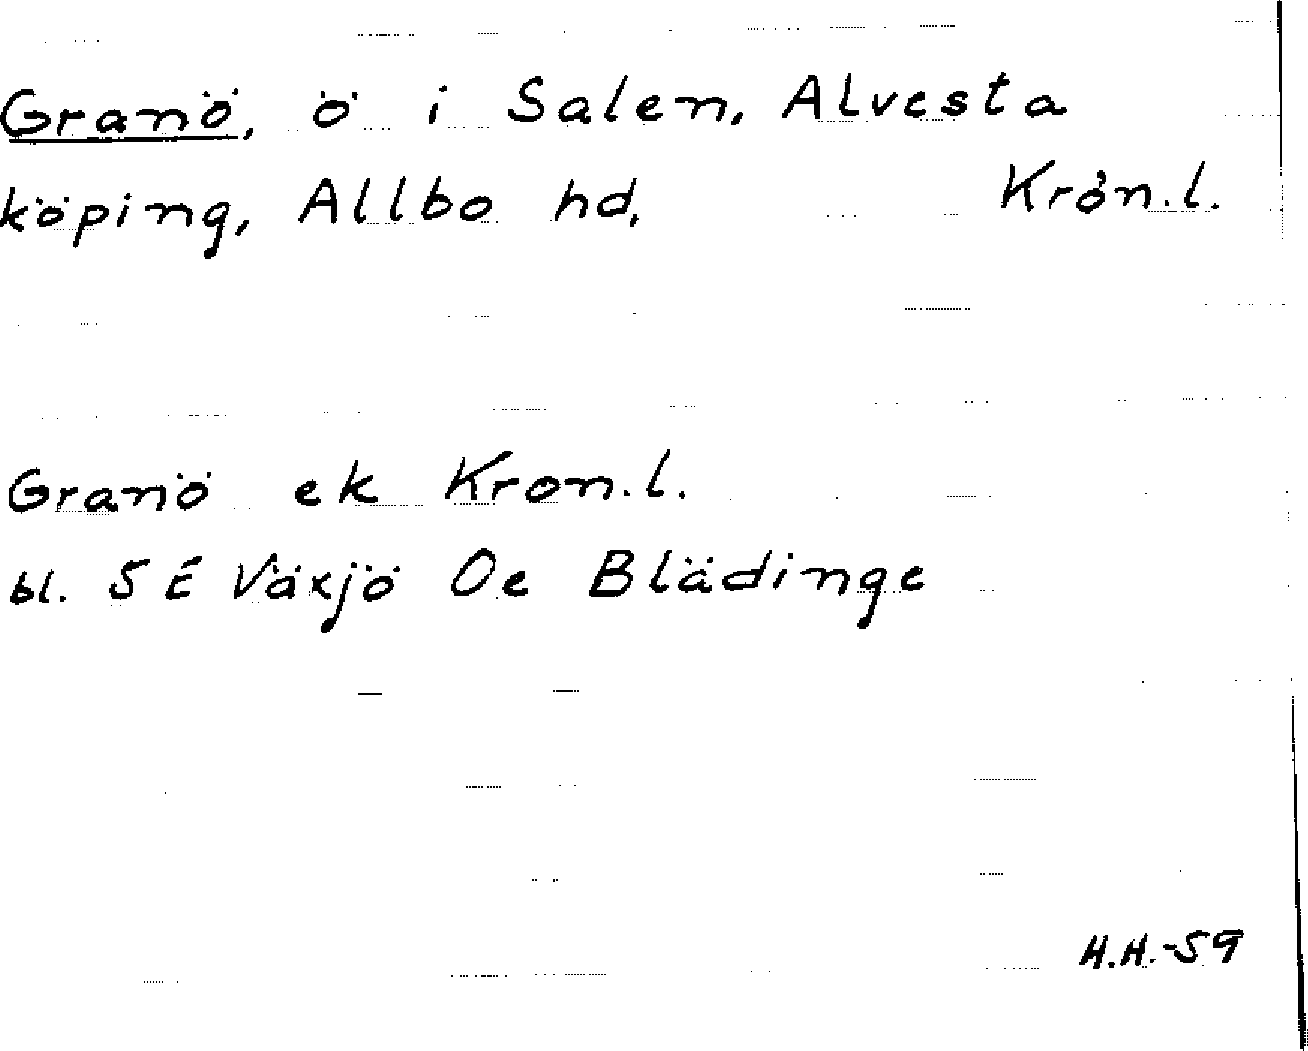 Granö, ö i Salen, Alvesta
köping, Allbo hd, Kron.l.
Granö ek Kron.l.
bl. 5 E Växjö Oe Blädinge
H.H.-59